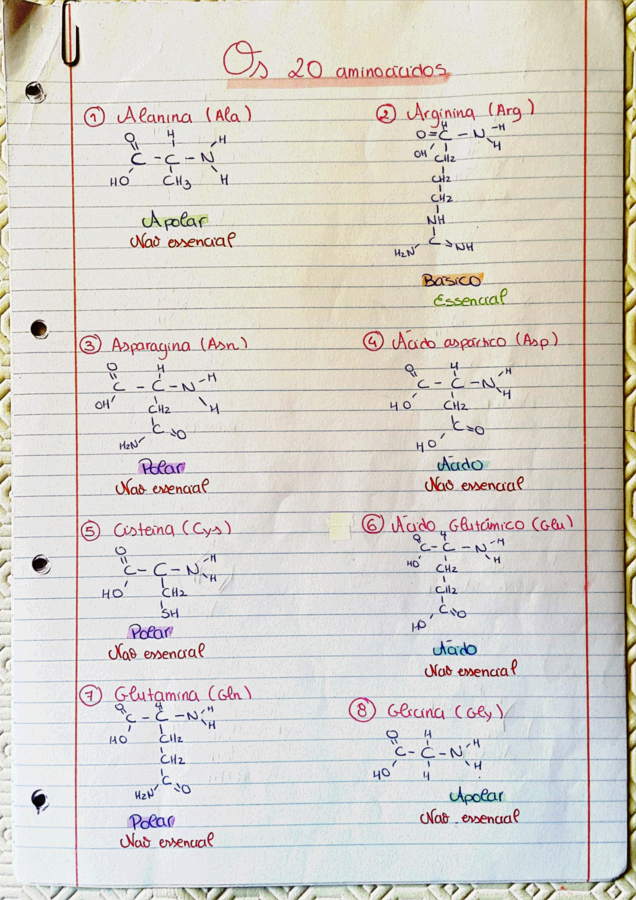 Os 20 aminoácidos
① Alanina (Ala)
O H H
C - C - N
HO CH3 H
Apolar
Não essencial
② Arginina (Arg)
O=C - N - H
H
OH CH2 H
CH2
CH2
NH
H2N C NH
Básico
Essencial
③ Asparagina (Asn)
O H H
C - C - N
OH CH2 H
C O
H2N
Polar
Não essencial
④ Ácido aspártico (Asp)
O H H
C - C - N
HO CH2 H
C=O
HO
Ácido
Não essencial
⑤ Cisteína (Cys)
O H H
C - C - N
HO CH2 H
SH
Polar
Não essencial
⑥ Ácido Glutâmico (Glu)
O H H
C - C - N
HO CH2 H
CH2
C O
HO
Ácido
Não essencial
⑦ Glutamina (Gln)
O H H
C - C - N
HO CH2 H
CH2
C O
H2N
Polar
Não essencial
⑧ Glicina (Gly)
O H H
C - C - N
HO H H
Apolar
Não essencial